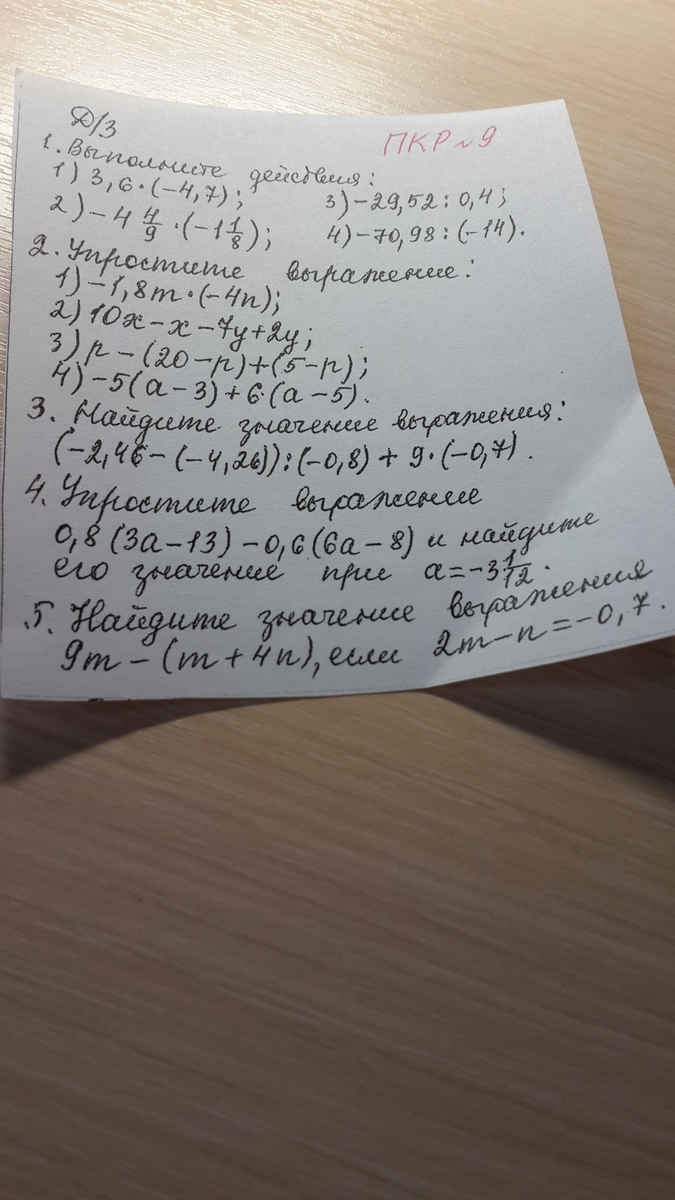 Д/З
ПКР №9
1. Выполните действия:
1) 3,6·(-4,7); 3) -29,52 : 0,4;
2) -4 4/9 · (-1 1/8); 4) -70,98 : (-14).
2. Упростите выражение:
1) -1,8m·(-4n);
2) 10x-x-7y+2y;
3) p-(20-p)+(5-p);
4) -5(a-3)+6·(a-5).
3. Найдите значение выражения:
(-2,46-(-4,26)):(-0,8)+9·(-0,7).
4. Упростите выражение
0,8(3a-13)-0,6(6a-8) и найдите
его значение при a=-3 1/12.
5. Найдите значение выражения
9m-(m+4n), если 2m-n=-0,7.